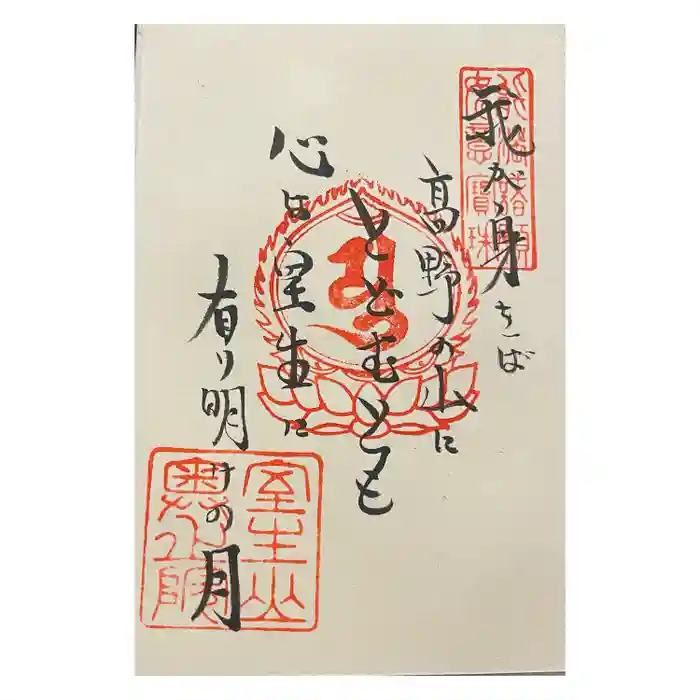 我が身をば
高野の山に
とどむとも
心は室生に
有り明けの月
如意寳珠
室生山
奥之院